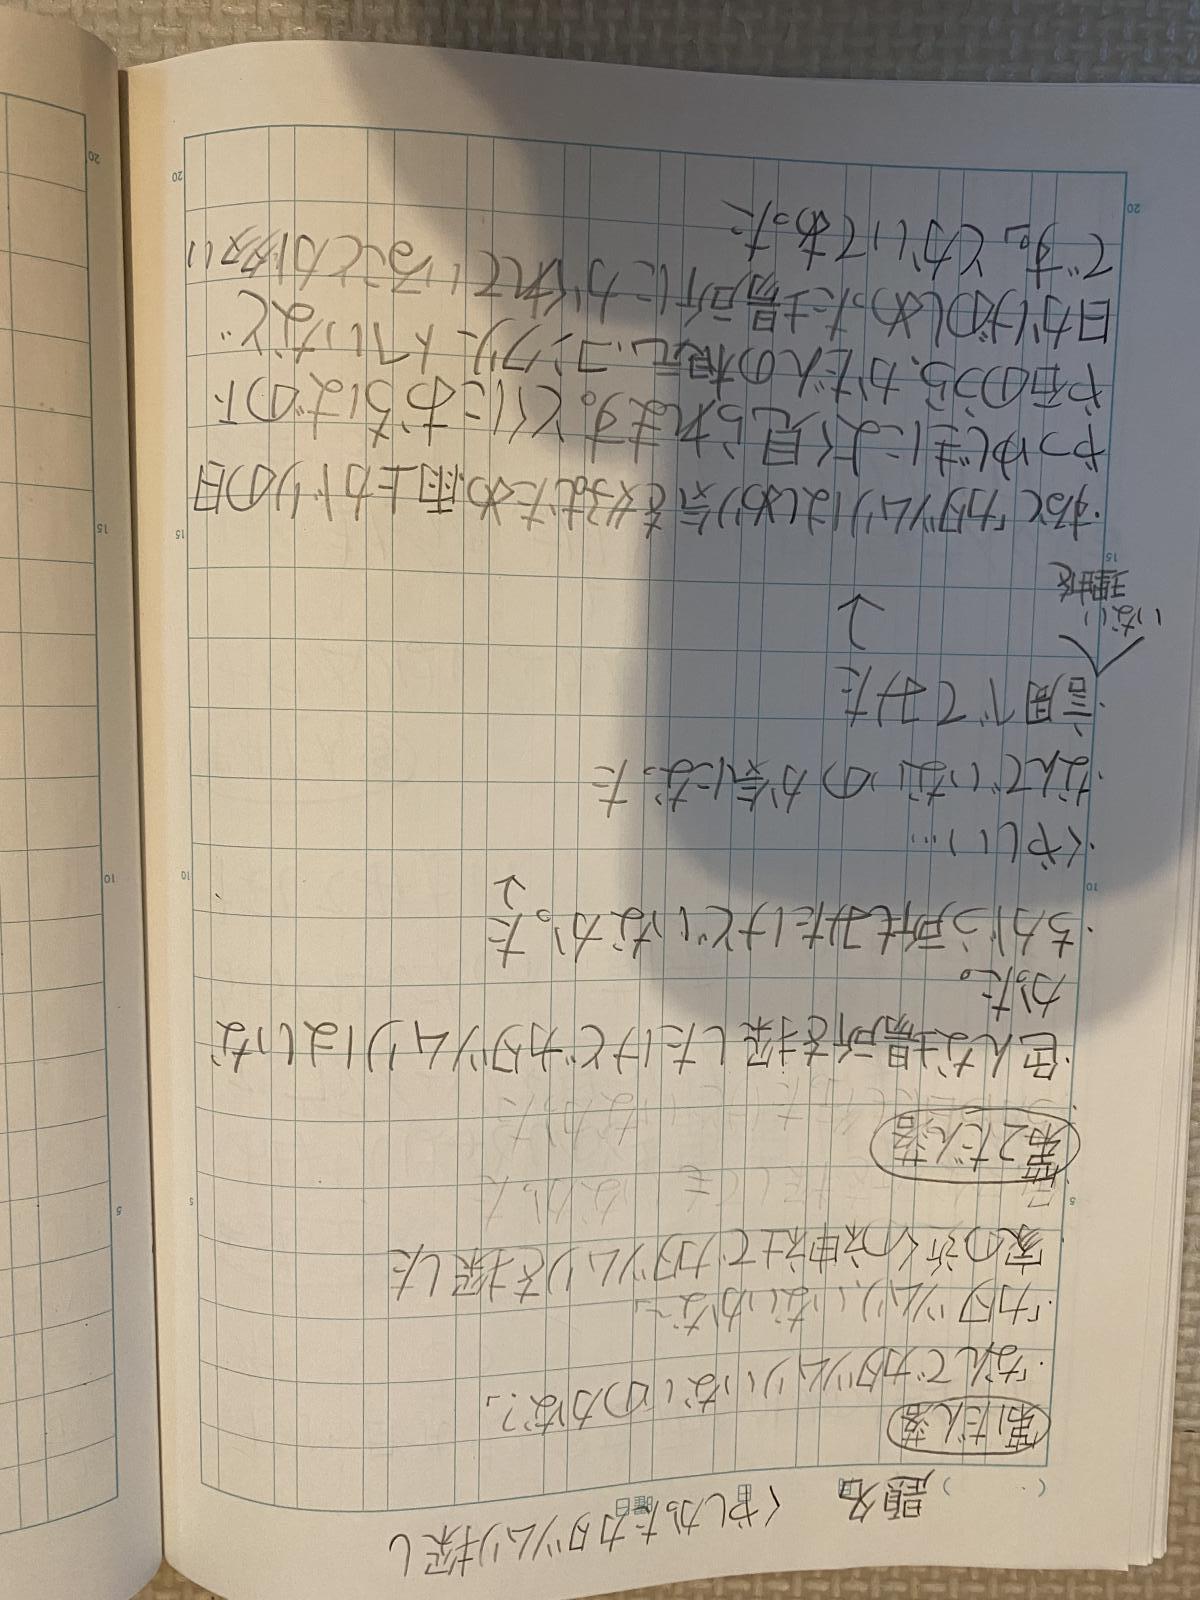 題名 くやしかったカタツムリ探し
第1だん落
・「なんでカタツムリいないのかな?」
・「カタツムリ、いないかな~」
・家の近くの神社でカタツムリを探した
第2だん落
・色んな場所を探したけどカタツムリはいな
かった。
・ちがう所もみたけどいなかった
↓
・くやしい…
・なんでいないのか気になった
・調べてみた
いない
理由を
↓
・すると「カタツムリはしめり気を好むため、雨上がりの日
やつゆどきによく見られます。とくにおちばの下
や石のうら、かだんの根元、コンクリートへいなど
日かげのしめった場所にかくれていることが多い
です。」とかいてあった